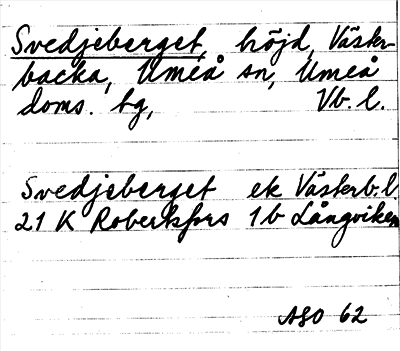 Svedjeberget, höjd, Väster-
backa, Umeå sn, Umeå
doms. tg, Vb. l.
Svedjeberget ek Västerb. l.
21 K Robertsfors 1b Långviken
ASO 62